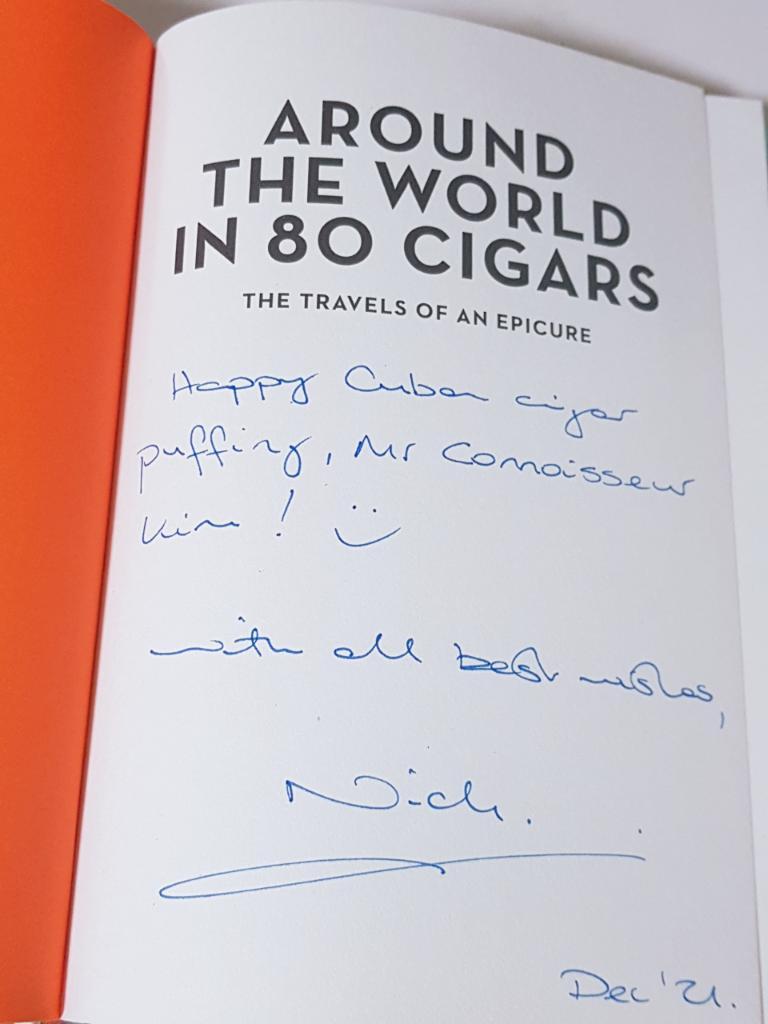 AROUND
THE WORLD
IN 80 CIGARS
THE TRAVELS OF AN EPICURE
Happy Cuban cigar
puffing, Mr Connoisseur
Kim! :)
with all best wishes,
Nick.
Dec '21.